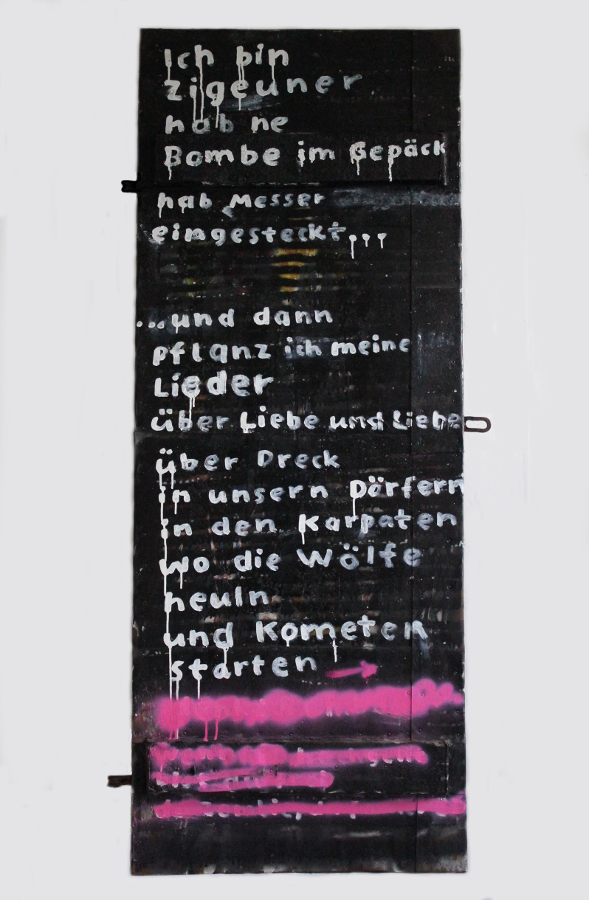 Ich bin
zigeuner
hab ne
Bombe im Gepäck
hab Messer
eingesteckt...
...und dann
pflanz ich meine
Lieder
über Liebe und Liebe
über Dreck
in unsern Dörfern
in den Karpaten
wo die Wölfe
heuln
und Kometen
starten